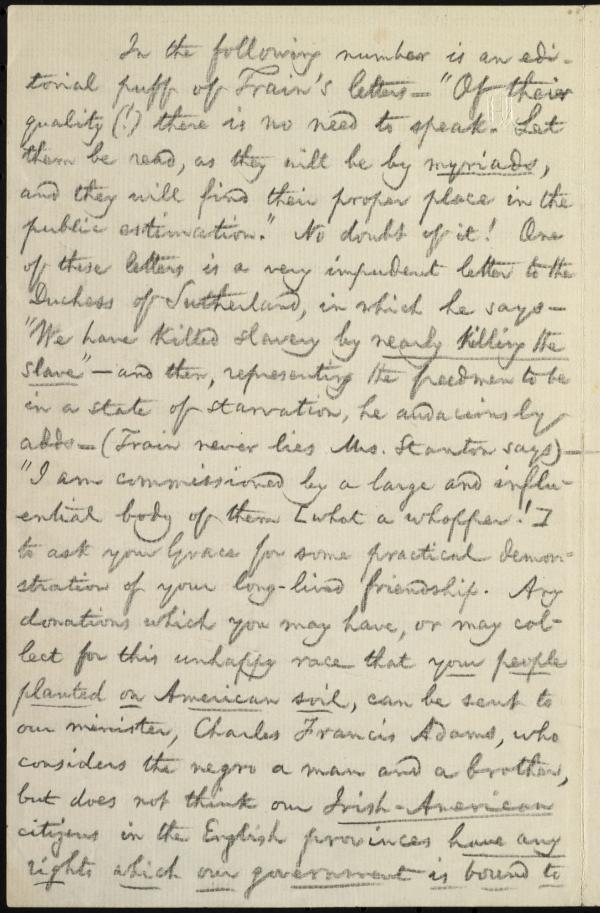 In the following number is an edi-
torial puff of Train's letters — "Of their
quality (!) there is no need to speak. Let
them be read, as they will be by myriads,
and they will find their proper place in the
public estimation." No doubt of it! One
of these letters is a very impudent letter to the
Duchess of Sutherland, in which he says —
"We have killed slavery by nearly killing the
slave" — and then, representing the freedmen to be
in a state of starvation, he audaciously
adds — (Train never lies Mrs. Stanton says) —
"I am commissioned by a large and influ-
ential body of them [what a whopper!]
to ask your Grace for some practical demon-
stration of your long-lived friendship. Any
donations which you may have, or may col-
lect for this unhappy race that your people
planted on American soil, can be sent to
our minister, Charles Francis Adams, who
considers the negro a man and a brother,
but does not think our Irish-American
citizens in the English provinces have any
rights which our government is bound to